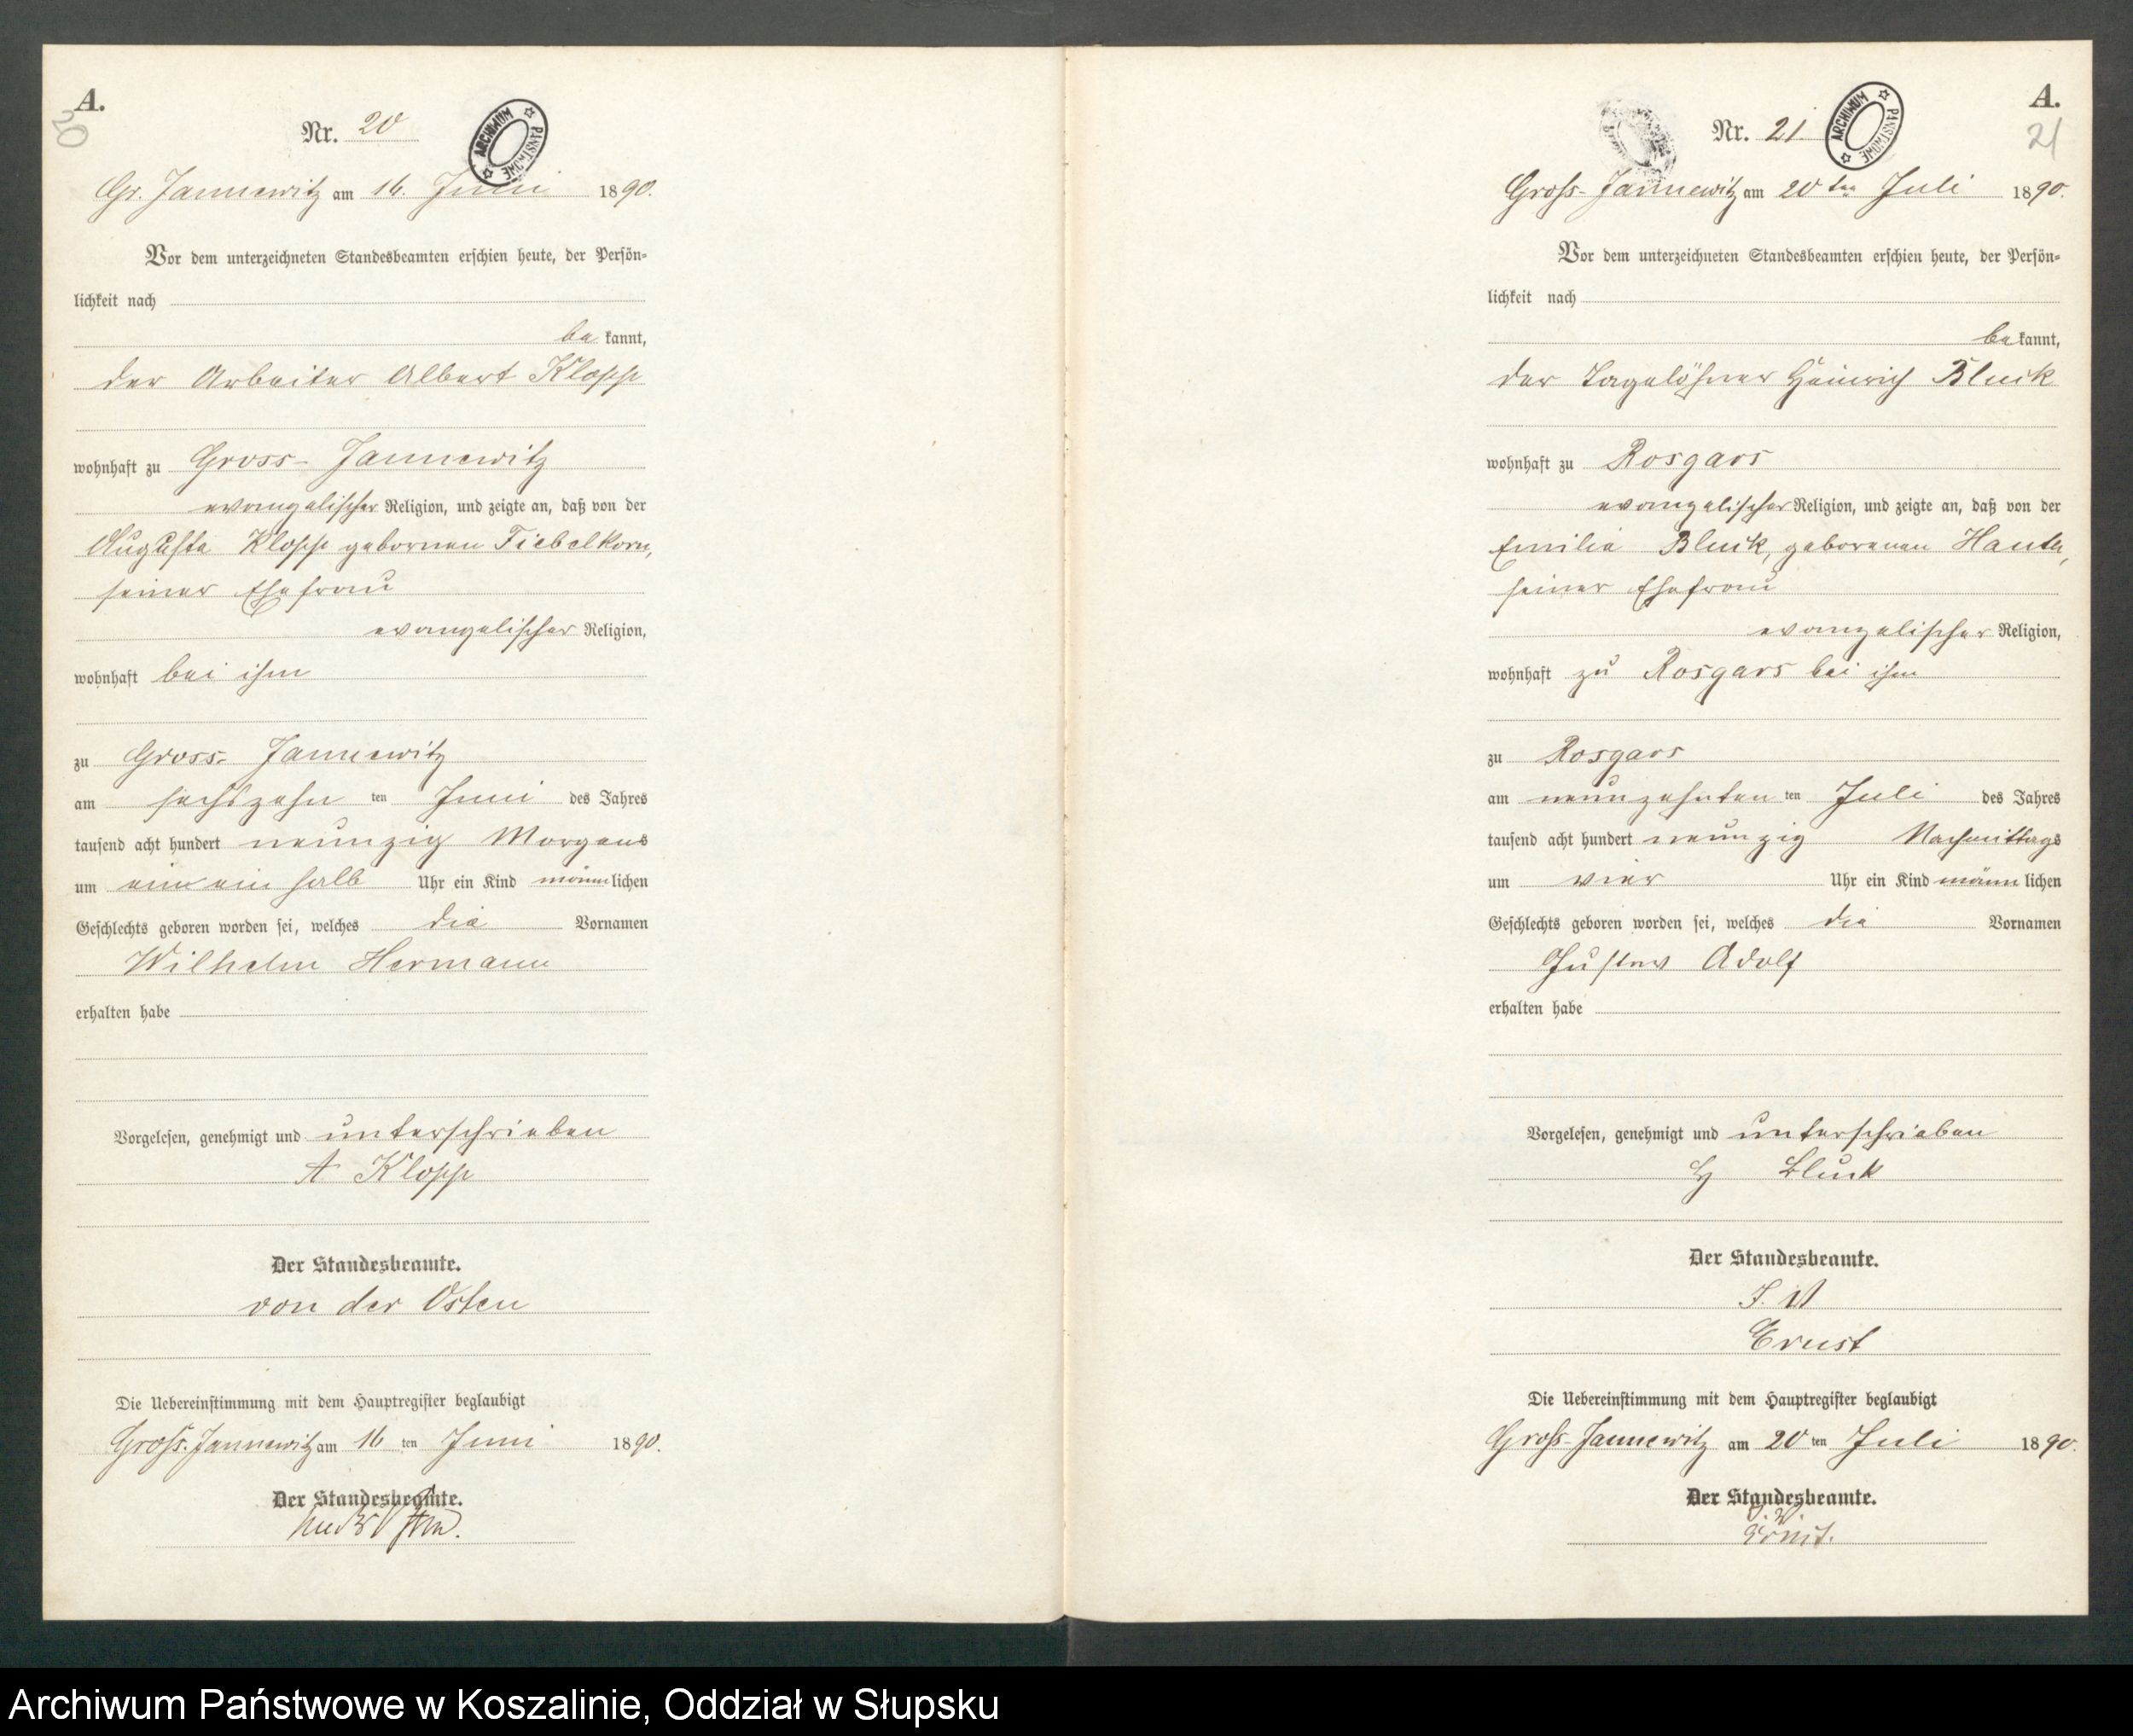 A.
20
Nr. 20
ARCHIWUM PAŃSTWOWE
Gr. Jannewitz am 16. Juni 1890.
Vor dem unterzeichneten Standesbeamten erschien heute, der Persön-
lichkeit nach
be kannt,
der Arbeiter Albert Klopp
wohnhaft zu Gross-Jannewitz
evangelischer Religion, und zeigte an, daß von der
Auguste Klopp gebornen Fiebelkorn,
seiner Ehefrau
evangelischer Religion,
wohnhaft bei ihm
zu Gross-Jannewitz
am sechszehn ten Juni des Jahres
tausend acht hundert neunzig Morgens
um ein halb Uhr ein Kind männlichen
Geschlechts geboren worden sei, welches die Vornamen
Wilhelm Hermann
erhalten habe
Vorgelesen, genehmigt und unterschrieben
A Klopp
Der Standesbeamte.
von der Osten
Die Uebereinstimmung mit dem Hauptregister beglaubigt
Gross-Jannewitz am 16 ten Juni 1890.
Der Standesbeamte.
A.
21
Nr. 21.
ARCHIWUM PAŃSTWOWE
Gross-Jannewitz am 20ten Juli 1890.
Vor dem unterzeichneten Standesbeamten erschien heute, der Persön-
lichkeit nach
bekannt,
der Tagelöhner Heinrich Bluck
wohnhaft zu Rosgars
evangelischer Religion, und zeigte an, daß von der
Emilie Bluck, geborenen
seiner Ehefrau
evangelischer Religion,
wohnhaft zu Rosgars bei ihm
zu Rosgars
am neunzehnten ten Juli des Jahres
tausend acht hundert neunzig Nachmittags
um vier Uhr ein Kind männlichen
Geschlechts geboren worden sei, welches die Vornamen
Gustav Adolf
erhalten habe
Vorgelesen, genehmigt und unterschrieben
H Bluck
Der Standesbeamte.
I. V
Ernst
Die Uebereinstimmung mit dem Hauptregister beglaubigt
Gross-Jannewitz am 20 ten Juli 1890.
Der Standesbeamte.
I. V
Ernst.
Archiwum Państwowe w Koszalinie, Oddział w Słupsku